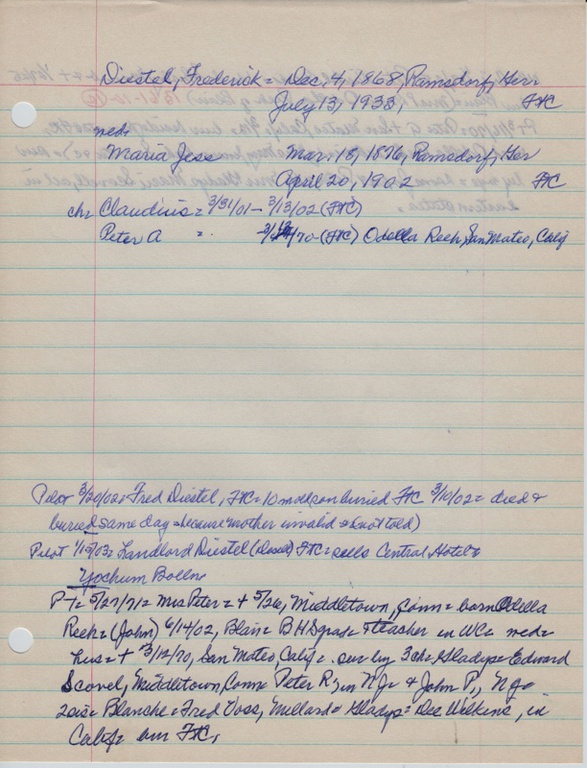 Diestel, Frederick = Dec. 4, 1868, Ramsdorf, Ger
July 13, 1933, FtC
wed=
Maria Jess Mar. 18, 1876, Ramsdorf, Ger
April 20, 1902 FtC
ch= Claudius = 3/31/01 - 3/13/02 (FtC)
Peter A = - 3/12/70 - (FtC) Odella Reeh, San Mateo, Calif
Pilot 3/20/02 = Fred Diestel, FtC = 10 mo old son buried FtC 3/10/02 = died &
buried same day = because mother invalid & (not told)
Pilot 1/15/03 = Landlord Diestel FtC = sells Central Hotel to
Yochum Bolln
P-T = 5/27/71 = Mrs Peter = + 5/26, Middletown, Conn = born Odella
Reeh = (John) 6/14/02, Blair = BHS grad = teacher in WC = wed =
hus = + 3/12/70, San Mateo, Calif = sur by 3 ch = Gladys = Edward
Scovel, Middletown, Conn Peter R, in NJ = & John P, NJ =
2 sis = Blanche = Fred Voss, Millard = Gladys = Dee Wilkins, in
Calif = bur FtC,